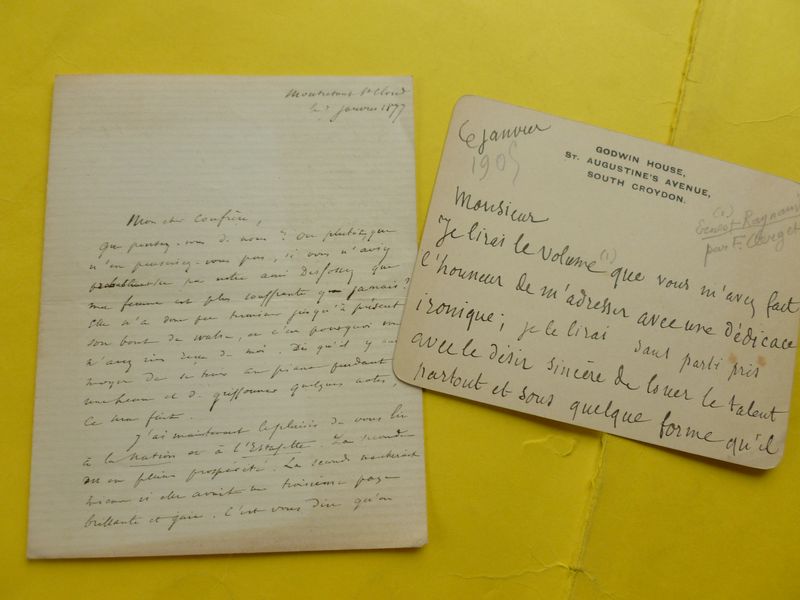 Montretout St Cloud
le 7 janvier 1877
Mon cher Confrère,
que pensez-vous de nous ? ou plutôt que
n'en penseriez-vous pas, si vous n'aviez
par notre ami que
ma femme est plus souffrante que jamais ?
Elle n'a donc pu terminer jusqu'à présent
son bout de valse, et c'est pourquoi vous
n'avez rien reçu de moi. Dès qu'il y aura
moyen de se tenir au piano pendant
une heure et de griffonner quelques notes,
ce sera fait.
J'ai maintenant le plaisir de vous lire
à la Nation et à l'Estafette. La
est en pleine prospérité. La seconde
si elle avait une troisième page
brillante et gaie. C'est vous dire qu'on
Ce janvier
1905
GODWIN HOUSE,
ST. AUGUSTINE'S AVENUE,
SOUTH CROYDON.
(1)
Ernest Raynaud
par F. Clerget
Monsieur
Je lirai le volume (1) que vous m'avez fait
l'honneur de m'adresser avec une dédicace
ironique ; je le lirai sans parti pris
avec le désir sincère de louer le talent
partout et sous quelque forme qu'il